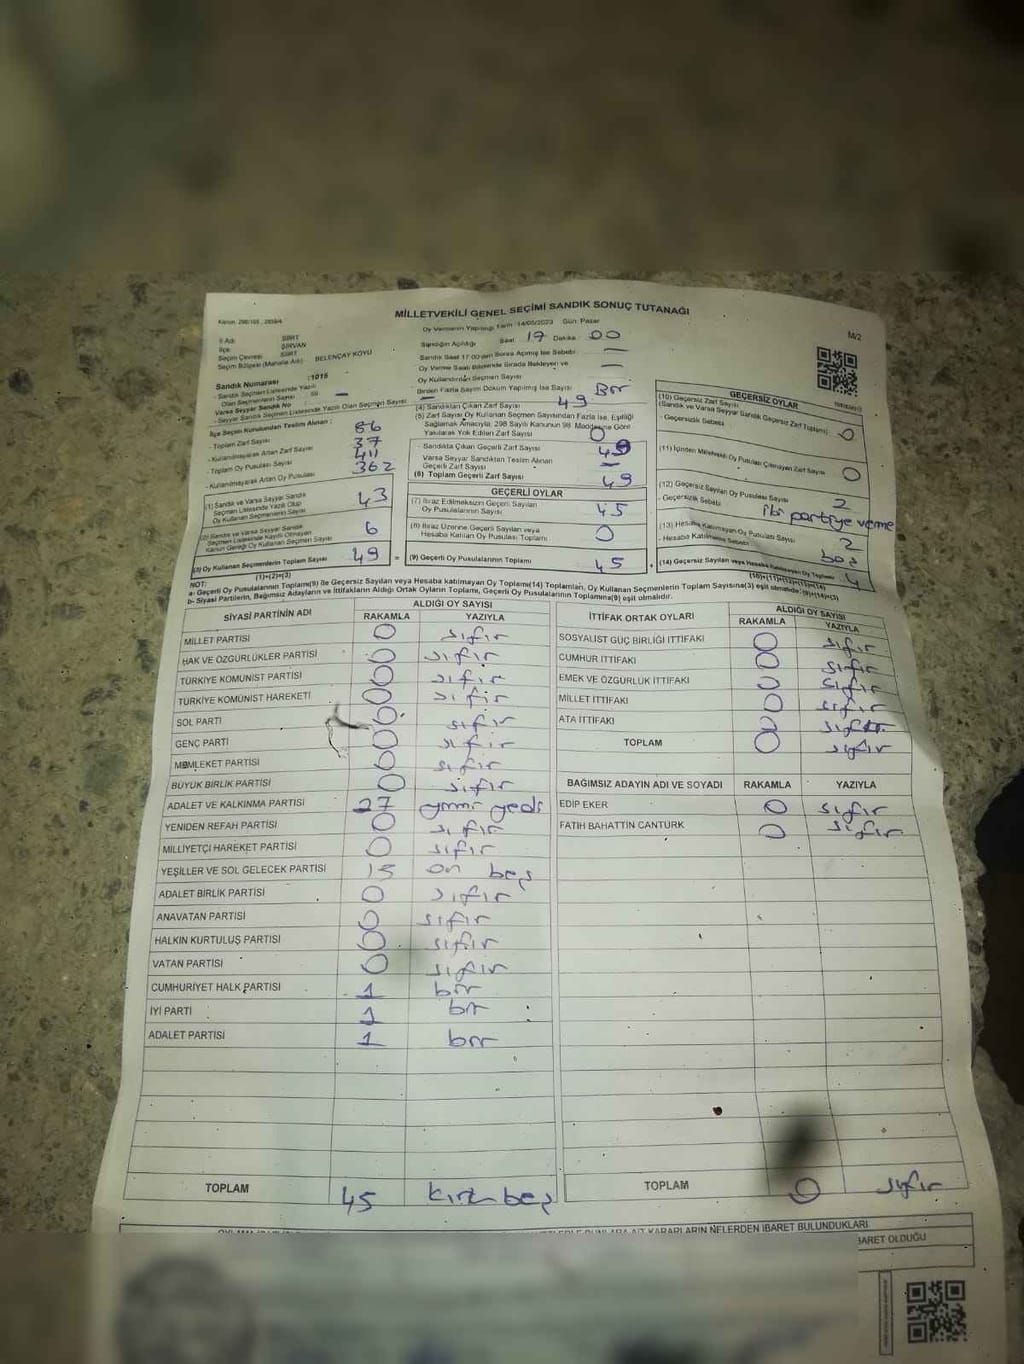 MİLLETVEKİLİ GENEL SEÇİMİ SANDIK SONUÇ TUTANAĞI
Oy Vermenin Yapıldığı Tarih :14/05/2023 Gün: Pazar
M/2
İl Adı: SİİRT
İlçe: ŞİRVAN
Seçim Çevresi SİİRT
Seçim Bölgesi (Mahalle Adı): BELENÇAY KÖYÜ
Sandık Numarası :1015
- Sandık Seçmen Listesinde Yazılı
Olan Seçmenlerin Sayısı
Varsa Seyyar Sandık No -
- Seyyar Sandık Seçmen Listesinde Yazılı Olan Seçmen Sayısı
İlçe Seçim Kurulundan Teslim Alınan :
- Toplam Zarf Sayısı 86
- Kullanılmayarak Artan Zarf Sayısı 37
- Toplam Oy Pusulası Sayısı 411
- Kullanılmayarak Artan Oy Pusulası 362
(1) Sandık ve Varsa Seyyar Sandık
Seçmen Listesinde Yazılı Olup
Oy Kullanan Seçmenlerin Sayısı 43
(2) Sandık ve Varsa Seyyar Sandık
Seçmen Listesinde Kayıtlı Olmayan
Kanun Gereği Oy Kullanan Seçmen Sayısı 6
(3) Oy Kullanan Seçmenlerin Toplam Sayısı 49
(1)+(2)=(3)
Sandığın Açıldığı Saat 17 Dakika : 00
Sandık Saat 17:00'den Sonra Açılmış İse Sebebi —
Oy Verme Saati Bitiminde Sırada Bekleyen ve
Oy Kullandırılan Seçmen Sayısı —
Birden Fazla Sayım Döküm Yapılmış İse Sayısı Bir
(4) Sandıktan Çıkan Zarf Sayısı 49
(5) Zarf Sayısı Oy Kullanan Seçmen Sayısından Fazla İse, Eşitliği
Sağlamak Amacıyla, 298 Sayılı Kanunun 98. Maddesine Göre
Yakılarak Yok Edilen Zarf Sayısı 0
- Sandıkta Çıkan Geçerli Zarf Sayısı 49
Varsa Seyyar Sandıktan Teslim Alınan
Geçerli Zarf Sayısı —
(6) Toplam Geçerli Zarf Sayısı 49
GEÇERLİ OYLAR
(7) İtiraz Edilmeksizin Geçerli Sayılan
Oy Pusulalarının Sayısı 45
(8) İtiraz Üzerine Geçerli Sayılan veya
Hesaba Katılan Oy Pusulası Toplamı 0
(9) Geçerli Oy Pusulalarının Toplamı 45
GEÇERSİZ OYLAR
(10) Geçersiz Zarf Sayısı
(Sandık ve Varsa Seyyar Sandık Geçersiz Zarf Toplamı) : 0
- Geçersizlik Sebebi
(11) İçinden Milletvekili Oy Pusulası Çıkmayan Zarf Sayısı 0
(12) Geçersiz Sayılan Oy Pusulası Sayısı 2
- Geçersizlik Sebebi partiye verme
(13) Hesaba Katılmayan Oy Pusulası Sayısı 2
- Hesaba Katılmama Sebebi boş
(14) Geçersiz Sayılan veya Hesaba Katılmayan Oy Toplamı 4
(10)+(11)+(12)+(13)=(14)
NOT:
a- Geçerli Oy Pusulalarının Toplamı(9) ile Geçersiz Sayılan veya Hesaba katılmayan Oy Toplamı(14) Toplamları, Oy Kullanan Seçmenlerin Toplam Sayısına(3) eşit olmalıdır.(9)+(14)=(3)
b- Siyasi Partilerin, Bağımsız Adayların ve İttifakların Aldığı Ortak Oyların Toplamı, Geçerli Oy Pusulalarının Toplamına(9) eşit olmalıdır.
SİYASİ PARTİNİN ADI ALDIĞI OY SAYISI
RAKAMLA YAZIYLA
MİLLET PARTİSİ 0 sıfır
HAK VE ÖZGÜRLÜKLER PARTİSİ 0 sıfır
TÜRKİYE KOMÜNİST PARTİSİ 0 sıfır
TÜRKİYE KOMÜNİST HAREKETİ 0 sıfır
SOL PARTİ 0 sıfır
GENÇ PARTİ 0 sıfır
MEMLEKET PARTİSİ 0 sıfır
BÜYÜK BİRLİK PARTİSİ 0 sıfır
ADALET VE KALKINMA PARTİSİ 27 yirmi yedi
YENİDEN REFAH PARTİSİ 0 sıfır
MİLLİYETÇİ HAREKET PARTİSİ 0 sıfır
YEŞİLLER VE SOL GELECEK PARTİSİ 15 on beş
ADALET BİRLİK PARTİSİ 0 sıfır
ANAVATAN PARTİSİ 0 sıfır
HALKIN KURTULUŞ PARTİSİ 0 sıfır
VATAN PARTİSİ 0 sıfır
CUMHURİYET HALK PARTİSİ 1 bir
İYİ PARTİ 1 bir
ADALET PARTİSİ 1 bir
TOPLAM 45 kırk beş
İTTİFAK ORTAK OYLARI ALDIĞI OY SAYISI
RAKAMLA YAZIYLA
SOSYALİST GÜÇ BİRLİĞİ İTTİFAKI 0 sıfır
CUMHUR İTTİFAKI 0 sıfır
EMEK VE ÖZGÜRLÜK İTTİFAKI 0 sıfır
MİLLET İTTİFAKI 0 sıfır
ATA İTTİFAKI 0 sıfır
TOPLAM 0 sıfır
BAĞIMSIZ ADAYIN ADI VE SOYADI RAKAMLA YAZIYLA
EDİP EKER 0 sıfır
FATİH BAHATTİN CANTÜRK 0 sıfır
TOPLAM 0 sıfır
KARARLARIN NELERDEN İBARET BULUNDUKLARI
İBARET OLDUĞU